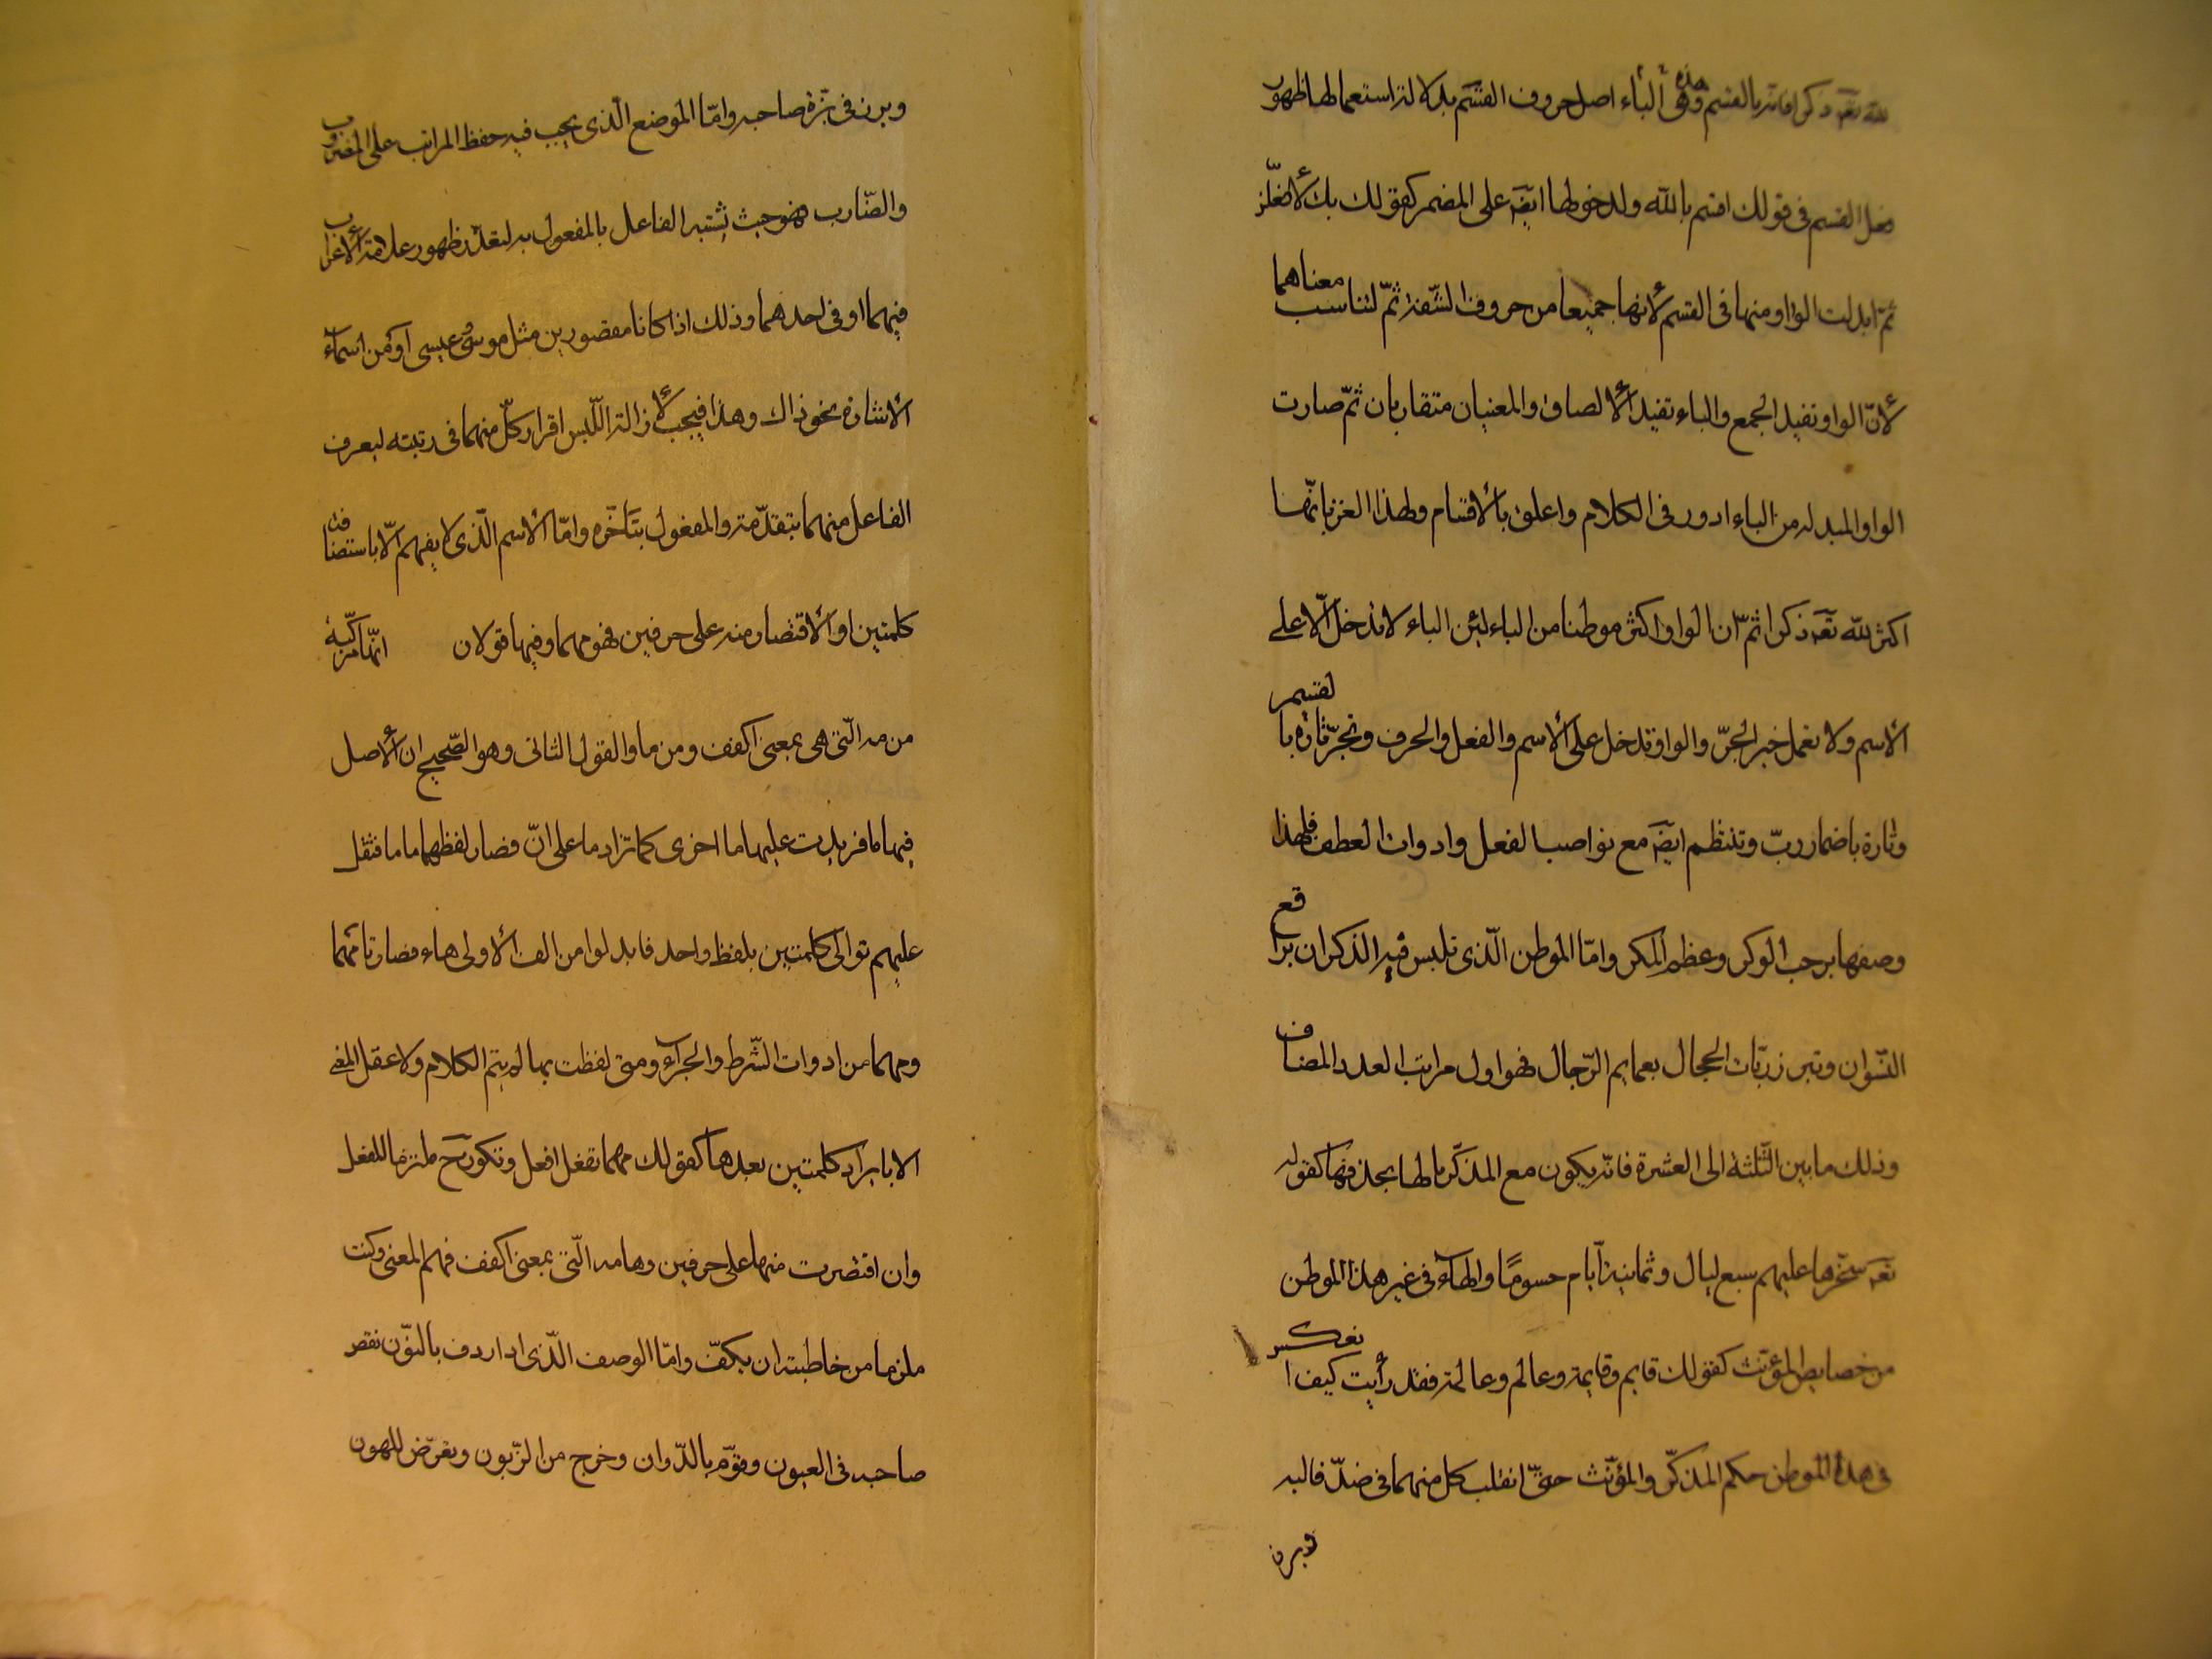 لله تعه ذكرا فانه بالقسم وهذه الباء اصل حروف القسم بدلالة استعمالها ظهور
فعل القسم فى قولك اقسم بالله ولدخولها ايضه على المضمر كقولك بك لأفعلن
ثم ابدلت الواو منها فى القسم لأنها جميعا من حروف الشفة ثمّ لتناسب معناهما
لأنّ الواو تفيد الجمع والباء تفيد الألصاق والمعنيان متقاربان ثمّ صارت
الواو المبدلة من الباء ادور فى الكلام واعلق بالأقسام ولهذا الغز بانّها
اكثر لله تعه ذكرا ثمّ ان الواو اكثر موطنا من الباء لئن الباء لا تدخل الّا على
الاسم ولا تعمل غير الجرّ والواو تدخل على الأسم والفعل والحرف وتجرّ تارة بالقسم
وتارة باضمار ربّ وتنتظم ايضه مع نواصب الفعل وادوات العطف فلهذا
وصفها برحب الوكر وعظم المكر وامّا الموطن الّذى تلبس فيه الذكران براقع
النّسوان وتبرز ربّات الحجال بعمايم الرّجال فهو اول مراتب العدد المضاف
وذلك ما بين الثّلثة الى العشرة فانّه يكون مع المذكّر بالها بحذفها كقوله
تعه سخّرها عليهم سبع ليال وثمانية أيام حسومًا والهآء فى غير هذا الموطن
من خصايص المؤنّث كقولك قايم وقايمة وعالم وعالمة فقد رأيت كيف انعكس
فى هذا الموطن حكم المذكّر والمؤنّث حتّى انقلب كل منهما فى ضدّ قالبه
وبرز
وبرز فى بزّة صاحبه وامّا الموضع الّذى يجب فيه حفظ المراتب على المضروب
والضّارب فهو حيث يشتبه الفاعل بالمفعول به لتعذّر ظهور علامة الأعراب
فيهما او فى احدهما وذلك اذا كانا مقصورين مثل موسى وعيسى او من اسمآء
الأشارة نحو ذاك وهذا فيجب لأزالة اللّبس اقرار كلّ منهما فى رتبته ليعرف
الفاعل منهما بتقدّمه والمفعول بتأخّره وامّا الأسم الّذى لا يفهم الّا باستضافة
كلمتين او الأقتصار منه على حرفين فهو مهما وفيها قولان انّها مركّبة
من مه الّتى هى بمعنى اكفف ومن ما والقول الثانى وهو الصّحيح ان الأصل
فيها ما فزيدت عليها ما اخرى كما تزاد ما على انّ فصار لفظهما ما ما فثقل
عليهم توالى كلمتين بلفظ واحد فابدلوا من الف الأولى هاء فصارتا مهما
ومهما من ادوات الشّرط والجزآء ومتى لفظت بها لم يتم الكلام ولا عقل المعنى
الا بايراد كلمتين بعدها كقولك مهما تفعل افعل وتكون ح ملتزما للفعل
وان اقتصرت منها على حرفين وهما مه الّتى بمعنى اكفف فهم المعنى وكنت
ملزما من خاطبته ان يكفّ وامّا الوصف الّذى اذا اردف بالنّون نقص
صاحبه فى العيون وقوّم بالدّوان وخرج من الزّبون وتعرّض للهون